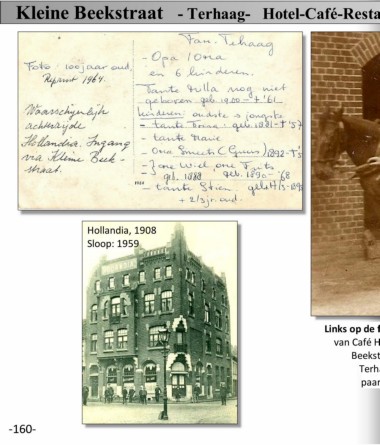 Kleine Beekstraat - Terhaag- Hotel-Café-Resta
Foto: 100 jaar oud.
Reprint 1964.
Waarschijnlijk
achterzijde
Hollandia. Ingang
via Kleine Beek-
straat.
Fam. Tehaag
- Opa / Oma
en 6 kinderen.
Tante nog niet
geboren geb. 1900 - + '61
kinderen: oudste jongste
- tante geb. 1881 - + '57
- tante Marie
- Oma Smeets (Guus) 1892 -
- oom Wiel, oom Frits
geb. 1888 geb. 1890 - '68
- tante Stien
+ 2/3 jr. oud.
Hollandia, 1908
Sloop: 1959
Links op de f
van Café H
Beekst
Terha
paar
-160-